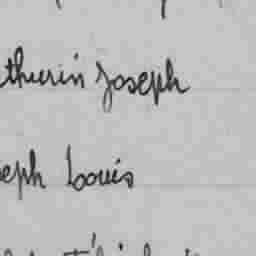 thurin Joseph
eph Louis